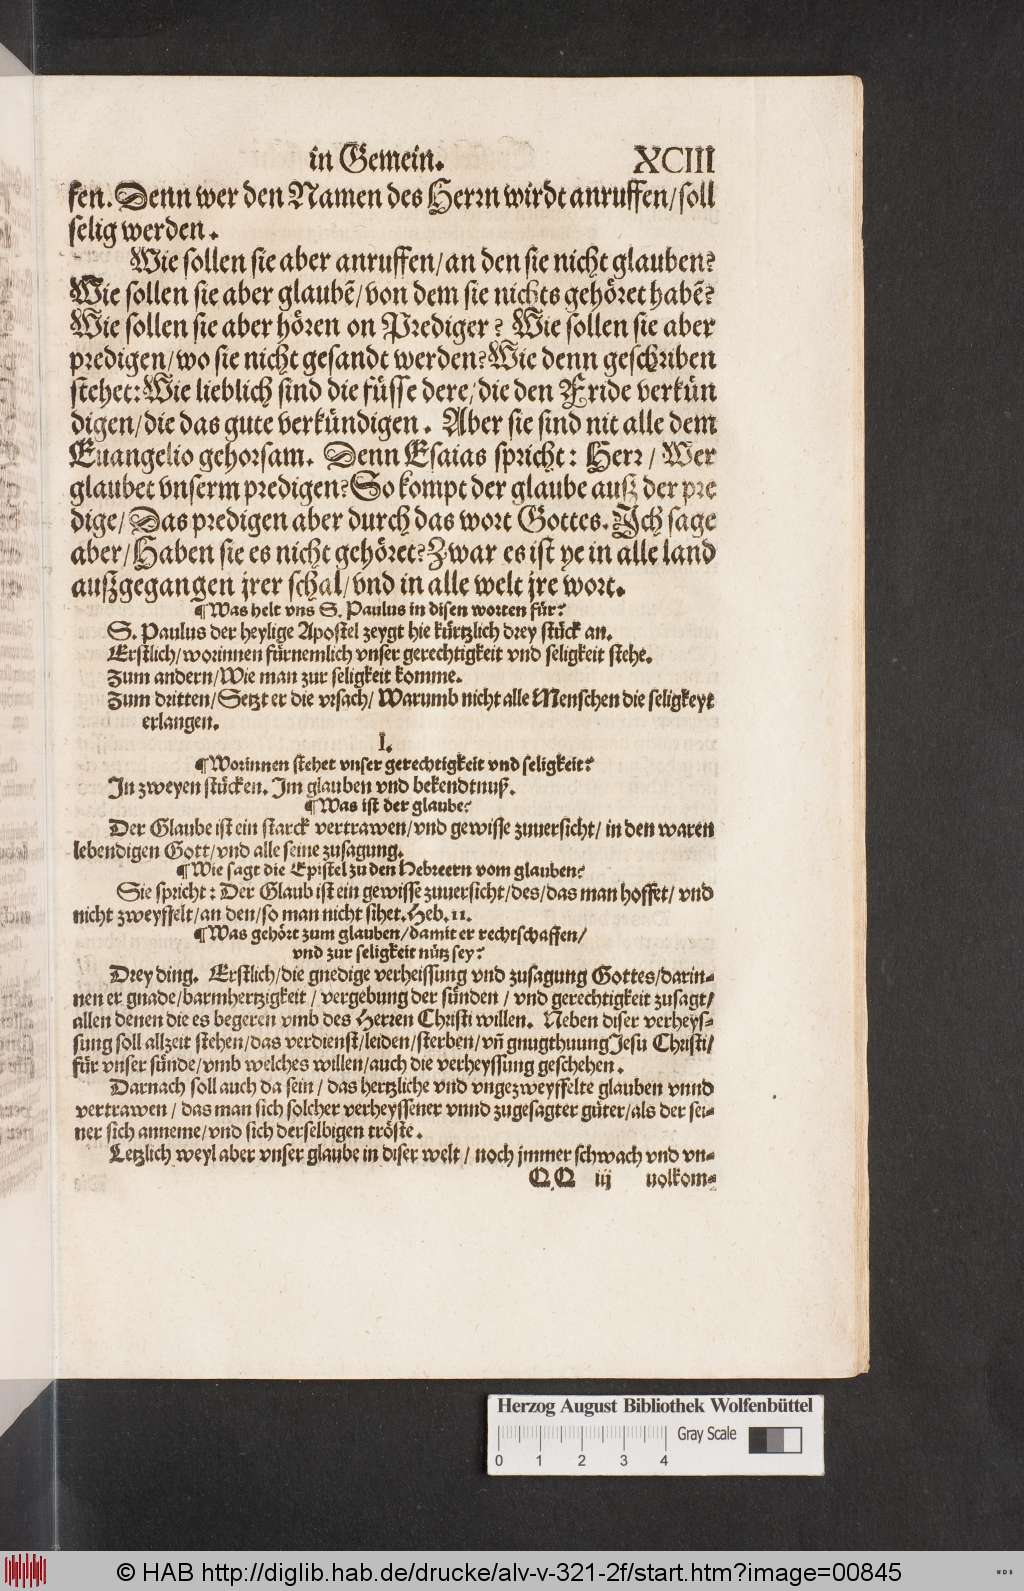 in Gemein. XCIII
fen. Denn wer den Namen des Herrn wirdt anruffen/soll
selig werden.
Wie sollen sie aber anruffen/an den sie nicht glauben?
Wie sollen sie aber glaubē/von dem sie nichts gehöret habē?
Wie sollen sie aber hören on Prediger? Wie sollen sie aber
predigen/wo sie nicht gesandt werden? Wie denn geschriben
stehet: Wie lieblich sind die füsse dere/die den Fride verkün
digen/die das gute verkündigen. Aber sie sind nit alle dem
Euangelio gehorsam. Denn Esaias spricht: Herr/Wer
glaubet vnserm predigen? So kompt der glaube auß der pre
dige/Das predigen aber durch das wort Gottes. Ich sage
aber/Haben sie es nicht gehöret? Zwar es ist ye in alle land
außgegangen jrer schal/vnd in alle welt jre wort.
¶ Was helt vns S. Paulus in disen worten für?
S. Paulus der heylige Apostel zeygt hie kürtzlich drey stück an.
Erstlich/worinnen fürnemlich vnser gerechtigkeit vnd seligkeit stehe.
Zum andern/Wie man zur seligkeit komme.
Zum dritten/Setzt er die vrsach/Warumb nicht alle Menschen die seligkeyt
erlangen.
I.
¶ Worinnen stehet vnser gerechtigkeit vnd seligkeit?
In zweyen stücken. Im glauben vnd bekendtnuß.
¶ Was ist der glaube?
Der Glaube ist ein starck vertrawen/vnd gewisse zuuersicht/in den waren
lebendigen Gott/vnd alle seine zusagung.
¶ Wie sagt die Epistel zu den Hebreern vom glauben?
Sie spricht: Der Glaub ist ein gewisse zuuersicht/des/das man hoffet/vnd
nicht zweyffelt/an den/so man nicht sihet. Heb. 11.
¶ Was gehört zum glauben/damit er rechtschaffen/
vnd zur seligkeit nütz sey?
Drey ding. Erstlich/die gnedige verheissung vnd zusagung Gottes/darin-
nen er gnade/barmhertzigkeit/vergebung der sünden/vnd gerechtigkeit zusagt/
allen denen die es begeren vmb des Herren Christi willen. Neben diser verheys-
sung soll allzeit stehen/das verdienst/leiden/sterben/vñ gnugthuung Jesu Christi/
für vnser sünde/vmb welches willen/auch die verheyssung geschehen.
Darnach soll auch da sein/das hertzliche vnd vngezweyffelte glauben vnnd
vertrawen/das man sich solcher verheyssener vnnd zugesagter güter/als der sei-
ner sich anneme/vnd sich derselbigen tröste.
Letzlich weyl aber vnser glaube in diser welt/noch jmmer schwach vnd vn-
QQ iij uolkom-
Herzog August Bibliothek Wolfenbüttel
Gray Scale
0 1 2 3 4
© HAB http://diglib.hab.de/drucke/alv-v-321-2f/start.htm?image=00845